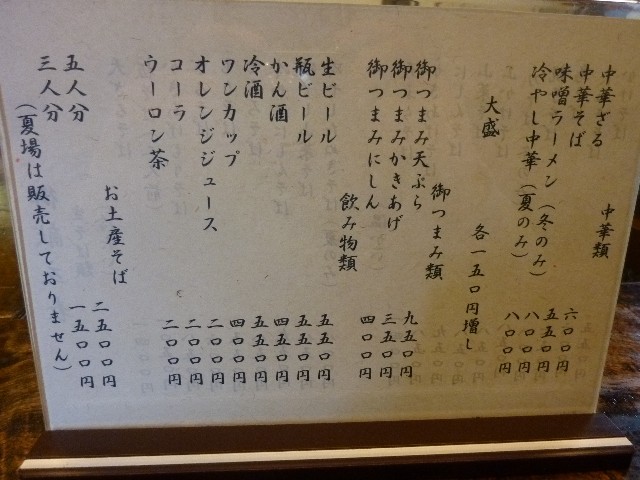 中華類
中華ざる 六〇〇円
中華そば 五五〇円
味噌ラーメン（冬のみ） 八〇〇円
冷やし中華（夏のみ） 八〇〇円
大盛 各一五〇円増し
御つまみ類
御つまみ天ぷら 九五〇円
御つまみかきあげ 三五〇円
御つまみにしん 四〇〇円
飲み物類
生ビール 五五〇円
瓶ビール 五五〇円
かん酒 四五〇円
冷酒 五五〇円
ワンカップ 四〇〇円
オレンジジュース 二〇〇円
コーラ 二〇〇円
ウーロン茶 二〇〇円
お土産そば
五人分 二五〇〇円
三人分 一五〇〇円
（夏場は販売しておりません）